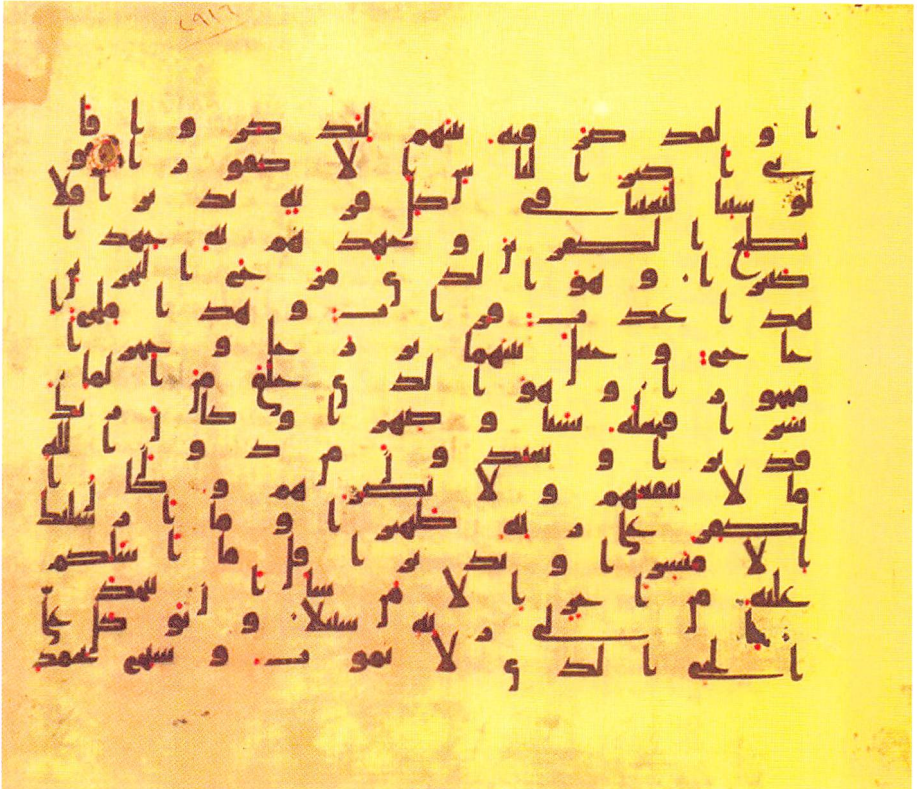 ا ولقد صرفنه بينهم ليذكروا فا
بى اكثر الناس الا كفورا و
لو شينا لبعثنا فى كل قرية نذيرا فلا
تطع الكفرين وجهدهم به جهدا
كبيرا وهو الذى مرج البحرين
هذا عذب فرات وهذا ملح ا
جاج وجعل بينهما برزخا وحجرا
محجورا وهو الذى خلق من الما
بشرا فجعله نسبا وصهرا وكان ربك
قديرا ويعبدون من دون الله
ما لا ينفعهم ولا يضرهم وكان
الكفر على ربه ظهيرا وما ارسلنك
الا مبشرا ونذيرا قل ما اسلكم
عليه من اجر الا من شا ان يتخذ
الى ربه سبيلا وتوكل على
الحى الذى لا يموت وسبح بحمد